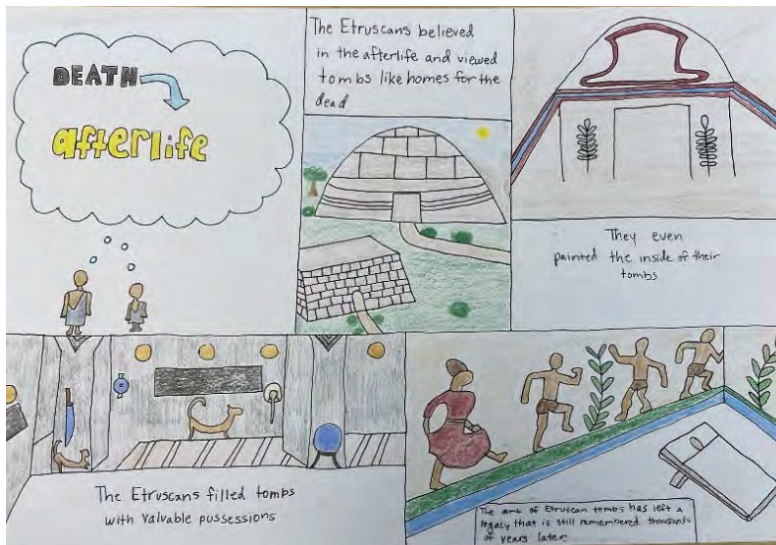 DEATH
afterlife
The Etruscans believed
in the afterlife and viewed
tombs like homes for the
dead
They even
painted the inside of their
tombs
The Etruscans filled tombs
with valuable pussessions
The art of Etruscan tombs has left a
legacy that is still remembered thousands
of years later.